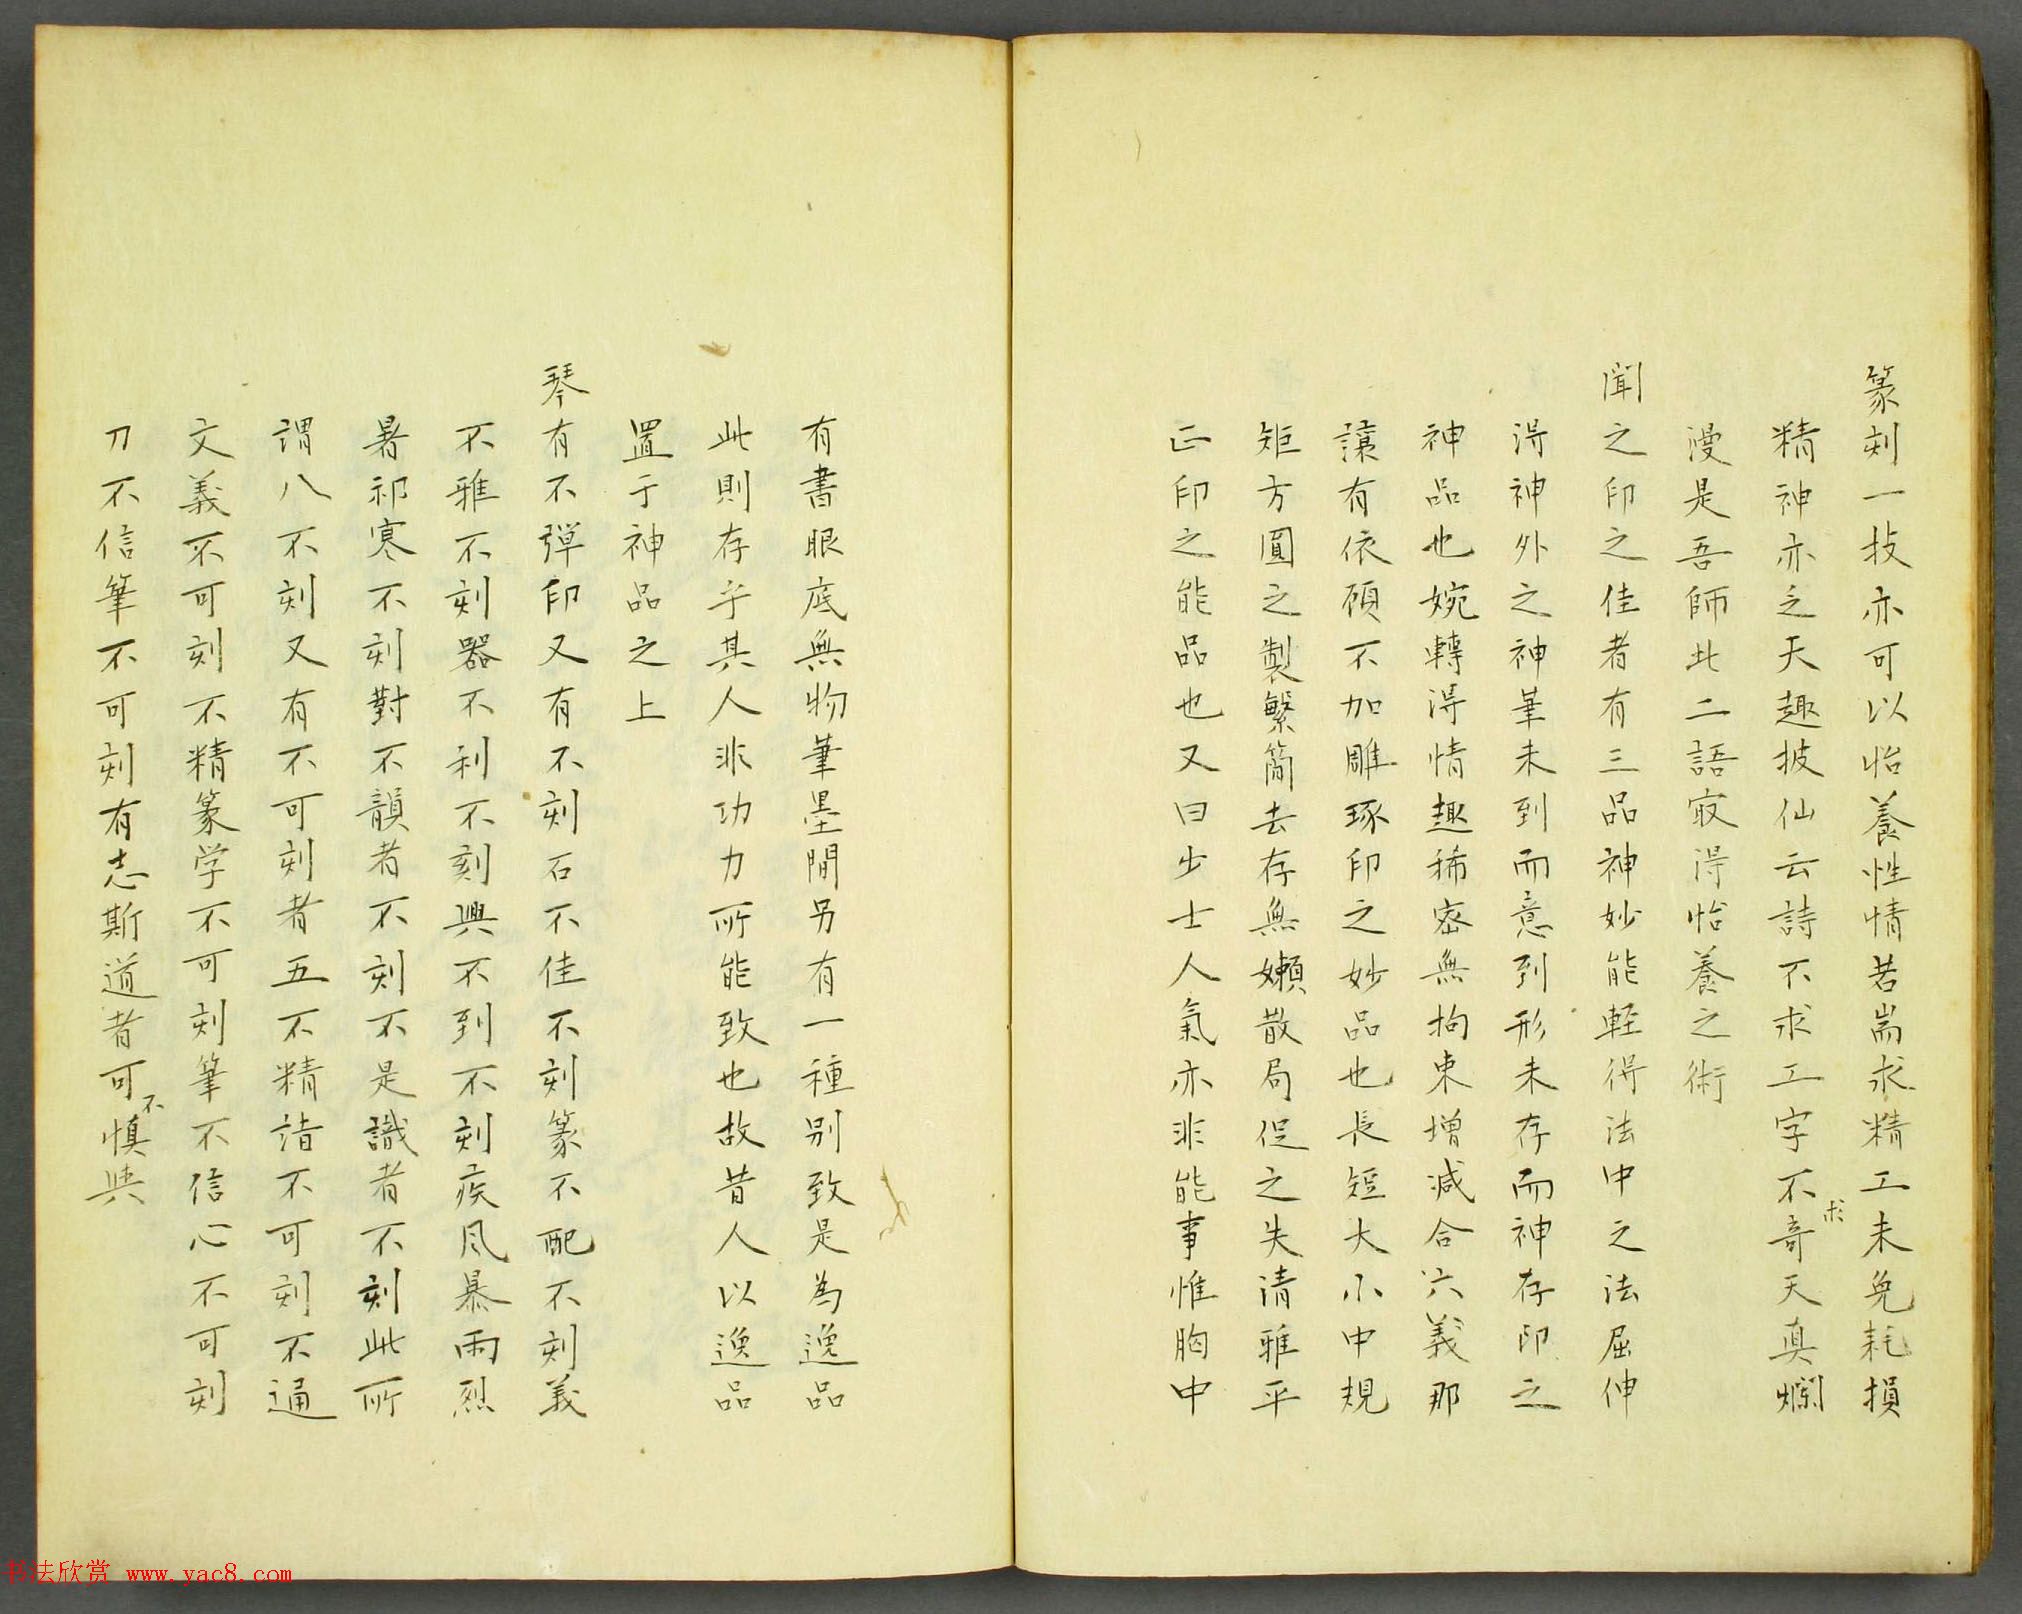 篆刻一技亦可以怡養性情若耑求精工未免耗損
精神亦乏天趣披仙云詩不求工字不求奇天真爛
漫是吾師此二語㝡得怡養之術
聞之印之佳者有三品神妙能軽得法中之法屈伸
得神外之神筆未到而意到形未存而神存印之
神品也婉轉得情趣稀密無拘束增減合六義那
讓有依顧不加雕琢印之妙品也長短大小中規
矩方圓之製繁簡去存無嬾散局促之失清雅平
正印之能品也又曰少士人氣亦非能事惟胸中
有書眼底無物筆墨間另有一種别致是為逸品
此則存乎其人非功力所能致也故昔人以逸品
置于神品之上
琴有不彈印又有不刻石不佳不刻篆不配不刻義
不雅不刻器不利不刻興不到不刻疾风暴雨烈
暑祁寒不刻對不韻者不刻不是識者不刻此所
謂八不刻又有不可刻者五不精詣不可刻不通
文義不可刻不精篆学不可刻筆不信心不可刻
刀不信筆不可刻有志斯道者可不慎與
书法欣赏 www.yac8.com